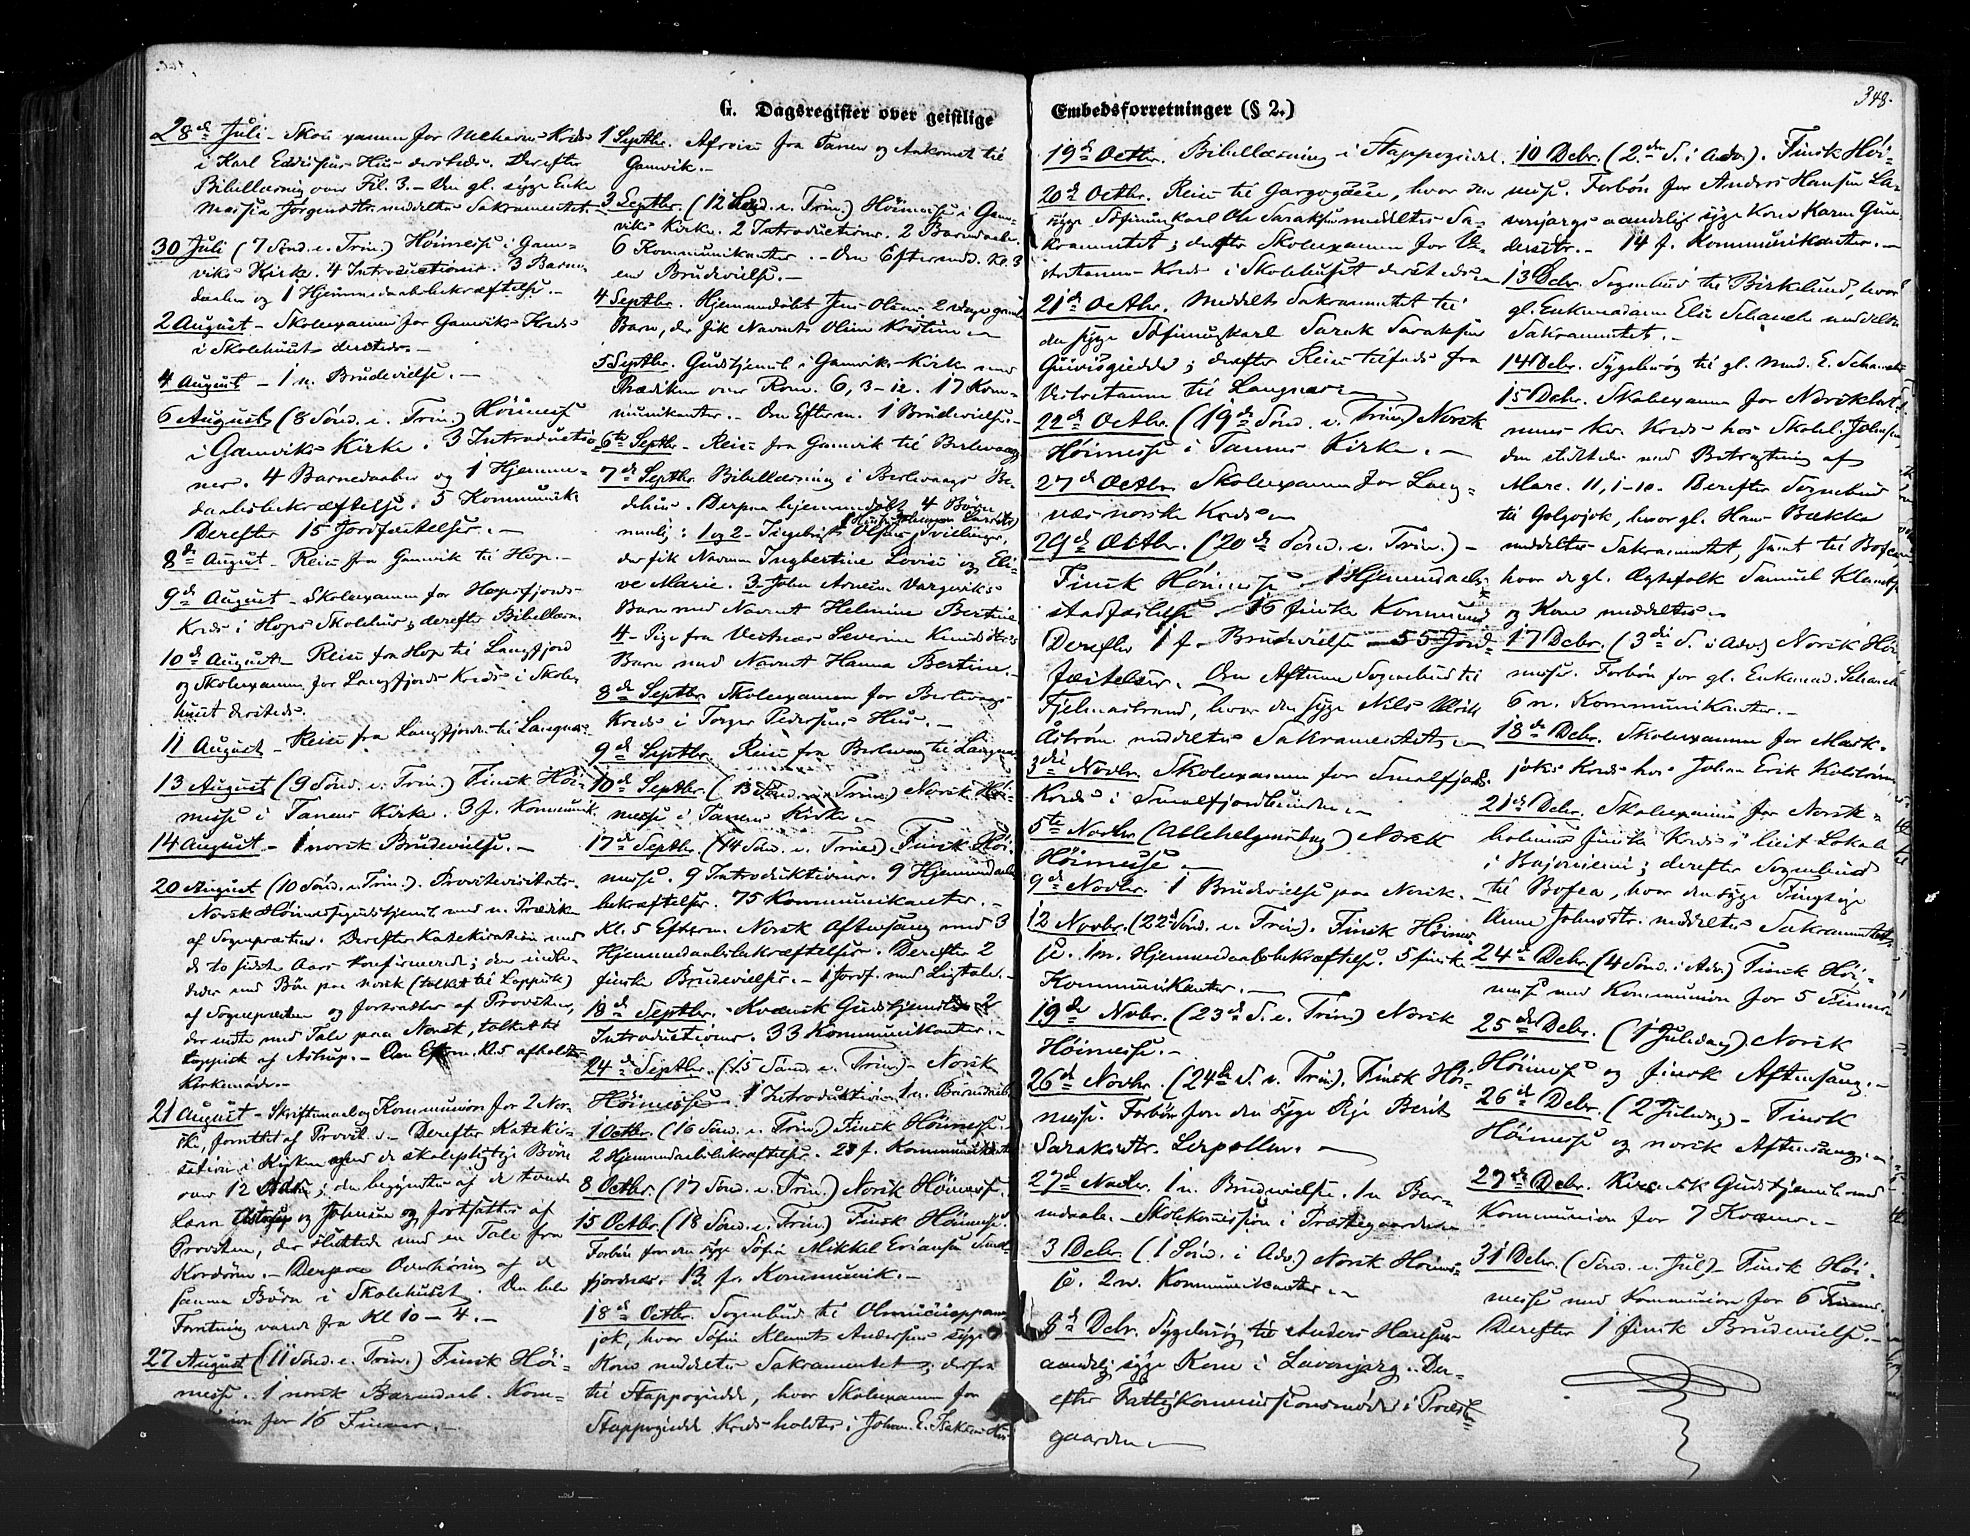 G. Dagsregister over geistlige
28de Juli - Skoleexamen for Mehavn-Kreds
i Karl Hus dersteds. Derefter
Bibellæsning over Fil. 3. - Den gl. syge Enke
Jørgensdtr. meddeltes Sakramentet. -
30 Juli (7 Sønd. e. Trin.) Höimesse i Gam-
viks Kirke. 4 Introductioner. 3 Barne-
daaber og 1 Hjemmedaabsbekræftelse. -
2 August - Skoleexamen for Gamviks-Kreds
i Skolehuset dersteds. -
4 August - 1 n. Brudevielse. -
6 August (8 Sönd. e. Trin.) Höimesse
i Gamviks Kirke. 3 Introductio-
ner. 4 Barnedaaber og 1 Hjemme-
daabsbekræftelse. 5 Kommunik.
Derefter 15 Jordfæstelser. -
8de August - Reise fra Gamvik til Hop. -
9de August - Skoleexamen for Hopsfjords-
Kreds i Hops Skolehus; derefter Bibellæsn.
10de August - Reise fra Hop til Langfjord
og Skoleexamen for Langfjords Kreds i Skole-
huset dersteds.
11 August - Reise fra Langfjorden til Langnæs.
13 August (9 Sönd. e. Trin.) Finsk Höi-
messe i Tanens Kirke. 3 f. Kommunik.
14 August - 1 norsk Brudevielse. -
20 August (10 Sönd. e. Trin.). Provstevisitats.
Norsk Höimessegudstjeneste med n. Prædiken
af Sognepræsten. Derefter Katekisation med
de to sidste Aars Konfirmerede; den indle-
dedes med Bön paa norsk (tolket til Lappisk)
af Sognepræsten og fortsattes af Provsten,
der endte med Tale paa Norsk, tolket til
lappisk af Astrup. - Den Efterm. Kl. 5 afholdtes
Kirkemøde. -
21 August - Skriftemaal og Kommunion for 2 Nor-
ske, forrettet af Provsten. - Derefter Kateki-
sation i Kirken med de skolepligtige Börn
over 12 Aar; den begyndtes af de tvende
Lærere og Johnsen og fortsattes af
Provsten, der sluttede med en Tale fra
Kordören. - Derpaa Overhöring af de
samme Börn i Skolehuset. Den hele
Forretning varede fra Kl 10 - 4. -
27 August (11 Sönd. e. Trin.) Finsk Höi-
messe. 1 norsk Barnedaab. Kom-
munion for 16 Finner. -
1 Septbr. Afreise fra Tanen og Ankomst til
Gamvik. -
3 Septbr. (12 Sönd. e. Trin.) Höimesse i Gam-
viks Kirke. 2 Introductioner. 2 Barnedaaber.
6 Kommunikanter. - Den Eftermidd. Kl. 3
en Brudevielse. -
4 Septbr. Hjemmedöbt Jens Olsens 2 Dage gamle
Barn, der fik Navnet Oline Kristine -
5 Septbr. Gudstjeneste i Gamviks Kirke med
Prædiken over Rom. 6, 3-12. 17 Kom-
munikanter. - Den Efterm. 1 Brudevielse. -
6te Septbr - Reise fra Gamvik til Berlevaag
7de Septbr. Bibellæsning i Berlevaags Be-
dehus. Derpaa hjemmedöbt 4 Börn
nemlig: 1 og 2 - Olsens Tvillinger,
der fik Navnene Ingbertine Lovise og Eli-
ve Marie. 3 - John Arnesen Vargviks
Barn med Navnet Helmine Bertine.
4 - Pige fra Vestnæs Severine Knudsdtrs
Barn med Navnet Hanna Bertine. -
8de Septbr. Skoleexamen for Berlevaags
Kreds i Torger Pedersens Hus. -
9de Septbr. Reise fra Berlevaag til Langnæs
10de Septbr. (13 Sönd. e. Trin.) Norsk Höi-
messe i Tanens Kirke -
17de Septbr. (14 Sönd. e. Trin.) Finsk Höi-
messe. 9 Introduktioner. 9 Hjemmedaabs-
bekræftelser. 75 Kommunikanter. -
Kl. 5 Efterm. Norsk Aftensang med 3
Hjemmedaabsbekræftelser. Derefter 2
finske Brudevielser. - 1 Jordf. med Ligtale. -
18de Septbr. - Kvænsk Gudstjeneste 2
Introductioner. 33 Kommunikanter. -
24de Septbr. (15 Sönd. e. Trin) - Norsk
Höimesse. 1 Introduktion 1 n. Barnedaab.
1 Octbr. (16 Sönd. e. Trin.) Finsk Höimesse. -
2 Hjemmedaabsbekræftelser. 28 f. Kommunikanter
8 Octbr. (17 Sönd. e. Trin.) Norsk Höimesse.
15 Octbr. (18 Sönd. e. Trin.) Finsk Höimesse.
Forbön for den syge Söfin Mikkel Eriansen Smal-
fjordnæs. 13 f. Kommunik. -
18de Octbr. Sognebud til
jok, hvor Söfin Klemet Andersens syge
Kone meddeltes Sakramentet; derfra
til Stappogiedde, hvor Skoleexamen for
Stappogiedde Kreds holdtes i Johan E. Hus
Embedsforretninger (§ 2.)
348.
19de Octbr. Bibellæsning i Stappogiedde.
20de Octbr. Reise til Gargogiecce, hvor den
syge Söfinungkarl Ole Saraksen meddeltes Sa-
kramentet; derefter Skoleexamen for
Kreds i Skolehuset dersteds -
21de Octbr. Meddelt Sakramentet til
den syge Söfinungkarl Sarak Saraksen
Guivisgiedde; derefter Reise tilfods fra
Vestertanen til Langnæs. -
22de Octbr. (19de Sönd. e. Trin) Norsk
Höimesse i Tanens Kirke. -
27de Octbr. Skoleexamen for Lang-
næs norske Kreds -
29de Octbr. (20de Sönd. e. Trin.) -
Finsk Höimesse. 1 Hjemmedaabs-
stadfæstelse. 16 finske Kommunik.
Derefter 1 f. Brudevielse - 55 Jord-
fæstelser. Den Aften Sognebud til
Fjelmastrand, hvor den syge Nils Ulrik
Åström meddeltes Sakramentet. -
3die Novbr. Skoleexamen for Smalfjords
Kreds i Smalfjordbunden -
5te Novbr (Allehelgensdag) Norsk
Höimesse -
9de Novbr. 1 Brudevielse paa Norsk. -
12 Novbr. (22 Sönd. e. Trin). Finsk Höimes-
se. 1 n. Hjemmedaabsbekræftelse. 5 finske
Kommunikanter. -
19de Novbr. (23de S. e. Trin) Norsk
Höimesse. -
26de Novbr. (24de S. e. Trin). Finsk Höi-
messe. Forbön for den syge Pige Berit
Saraksdtr. Leirpollen. -
27de Novbr. 1 n. Brudevielse. 1 n Bar-
nedaab. - Skolekommission i Præstegaarden
3 Debr. (1 Sönd. i Adv.) Norsk Höimes-
se. 2 n. Kommunikanter -
8de Debr. Sygebesög til Anders Hansens
aandelig syge Kone i Lavvonjarg. Der-
efter Fattigkommissionsmøde i Præste-
gaarden -
10 Debr. (2den S. i Adv.). Finsk Höi-
messe. Forbön for Anders Hansen La-
vonjargs aandelig syge Kone Karen Gun-
dersdtr. - 14 f. Kommunikanter. -
13 Debr. Sognebud til Birkelund, hvor
gl. Enkemadam Else Schanche meddeltes
Sakramentet. -
14 Debr. Sygebesög til gl. Mad. E. Schanche
15 Debr. Skoleexamen for Norskhol-
mens kv. Kreds hos Skolel. Johnsen
den sluttedes med Betragtning af
Marc. 11, 1-10. Derefter Sognebud
til Golgojok, hvor gl. Hans Bækka
meddeltes Sakramentet, samt til Bofea,
hvor de gl. Ægtefolk Samuel Klemetsen
og Kone meddeltes -
17 Debr. (3die S. i Adv.) Norsk Höi-
messe. Forbön for gl. Enkemad. Schanche
6 n. Kommunikanter. -
18de Debr. Skoleexamen for Mask-
joks Kreds hos Johan Erik Kolström
21de Debr. Skoleexamen for Norsk-
holmens finske Kreds i leiet Lokale
i; derefter Sognebud
til Bofea, hvor den syge Fingpige
Anne Johnsdtr. meddeltes Sakramentet
24de Debr. (4 Sönd. i Adv.) Finsk Höi-
messe med Kommunion for 5 Finner
25de Debr. (1 Juledag) Norsk
Höimesse og finsk Aftensang. -
26de Debr. (2 Juledag) - Finsk
Höimesse og norsk Aftensang. -
29de Debr. Kvænsk Gudstjeneste med
Kommunion for 7 Kvæner. -
31 Debr. (Sönd. e. Jul) - Finsk Höi-
messe med Kommunion for 6 Finner.
Derefter 1 finsk Brudevielse. -